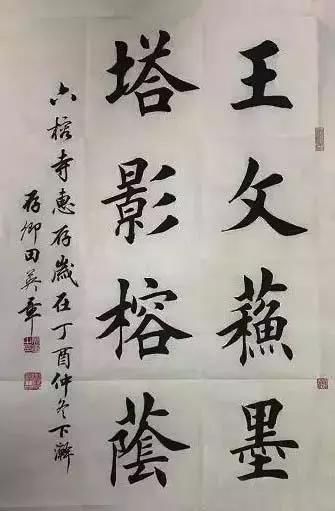 王文蘓墨
塔影榕蔭
六榕寺惠存歲在丁酉仲冬下澣
存卿田英章